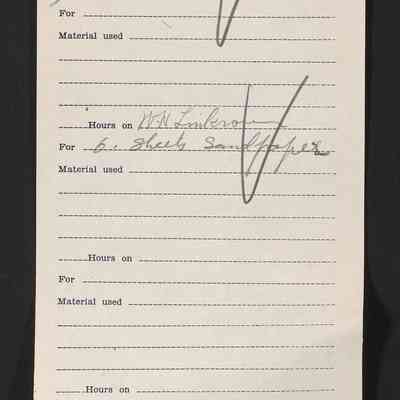 For
Material used
Hours on W.H.
For 6. Sheets Sandpaper
Material used
Hours on
For
Material used
Hours on